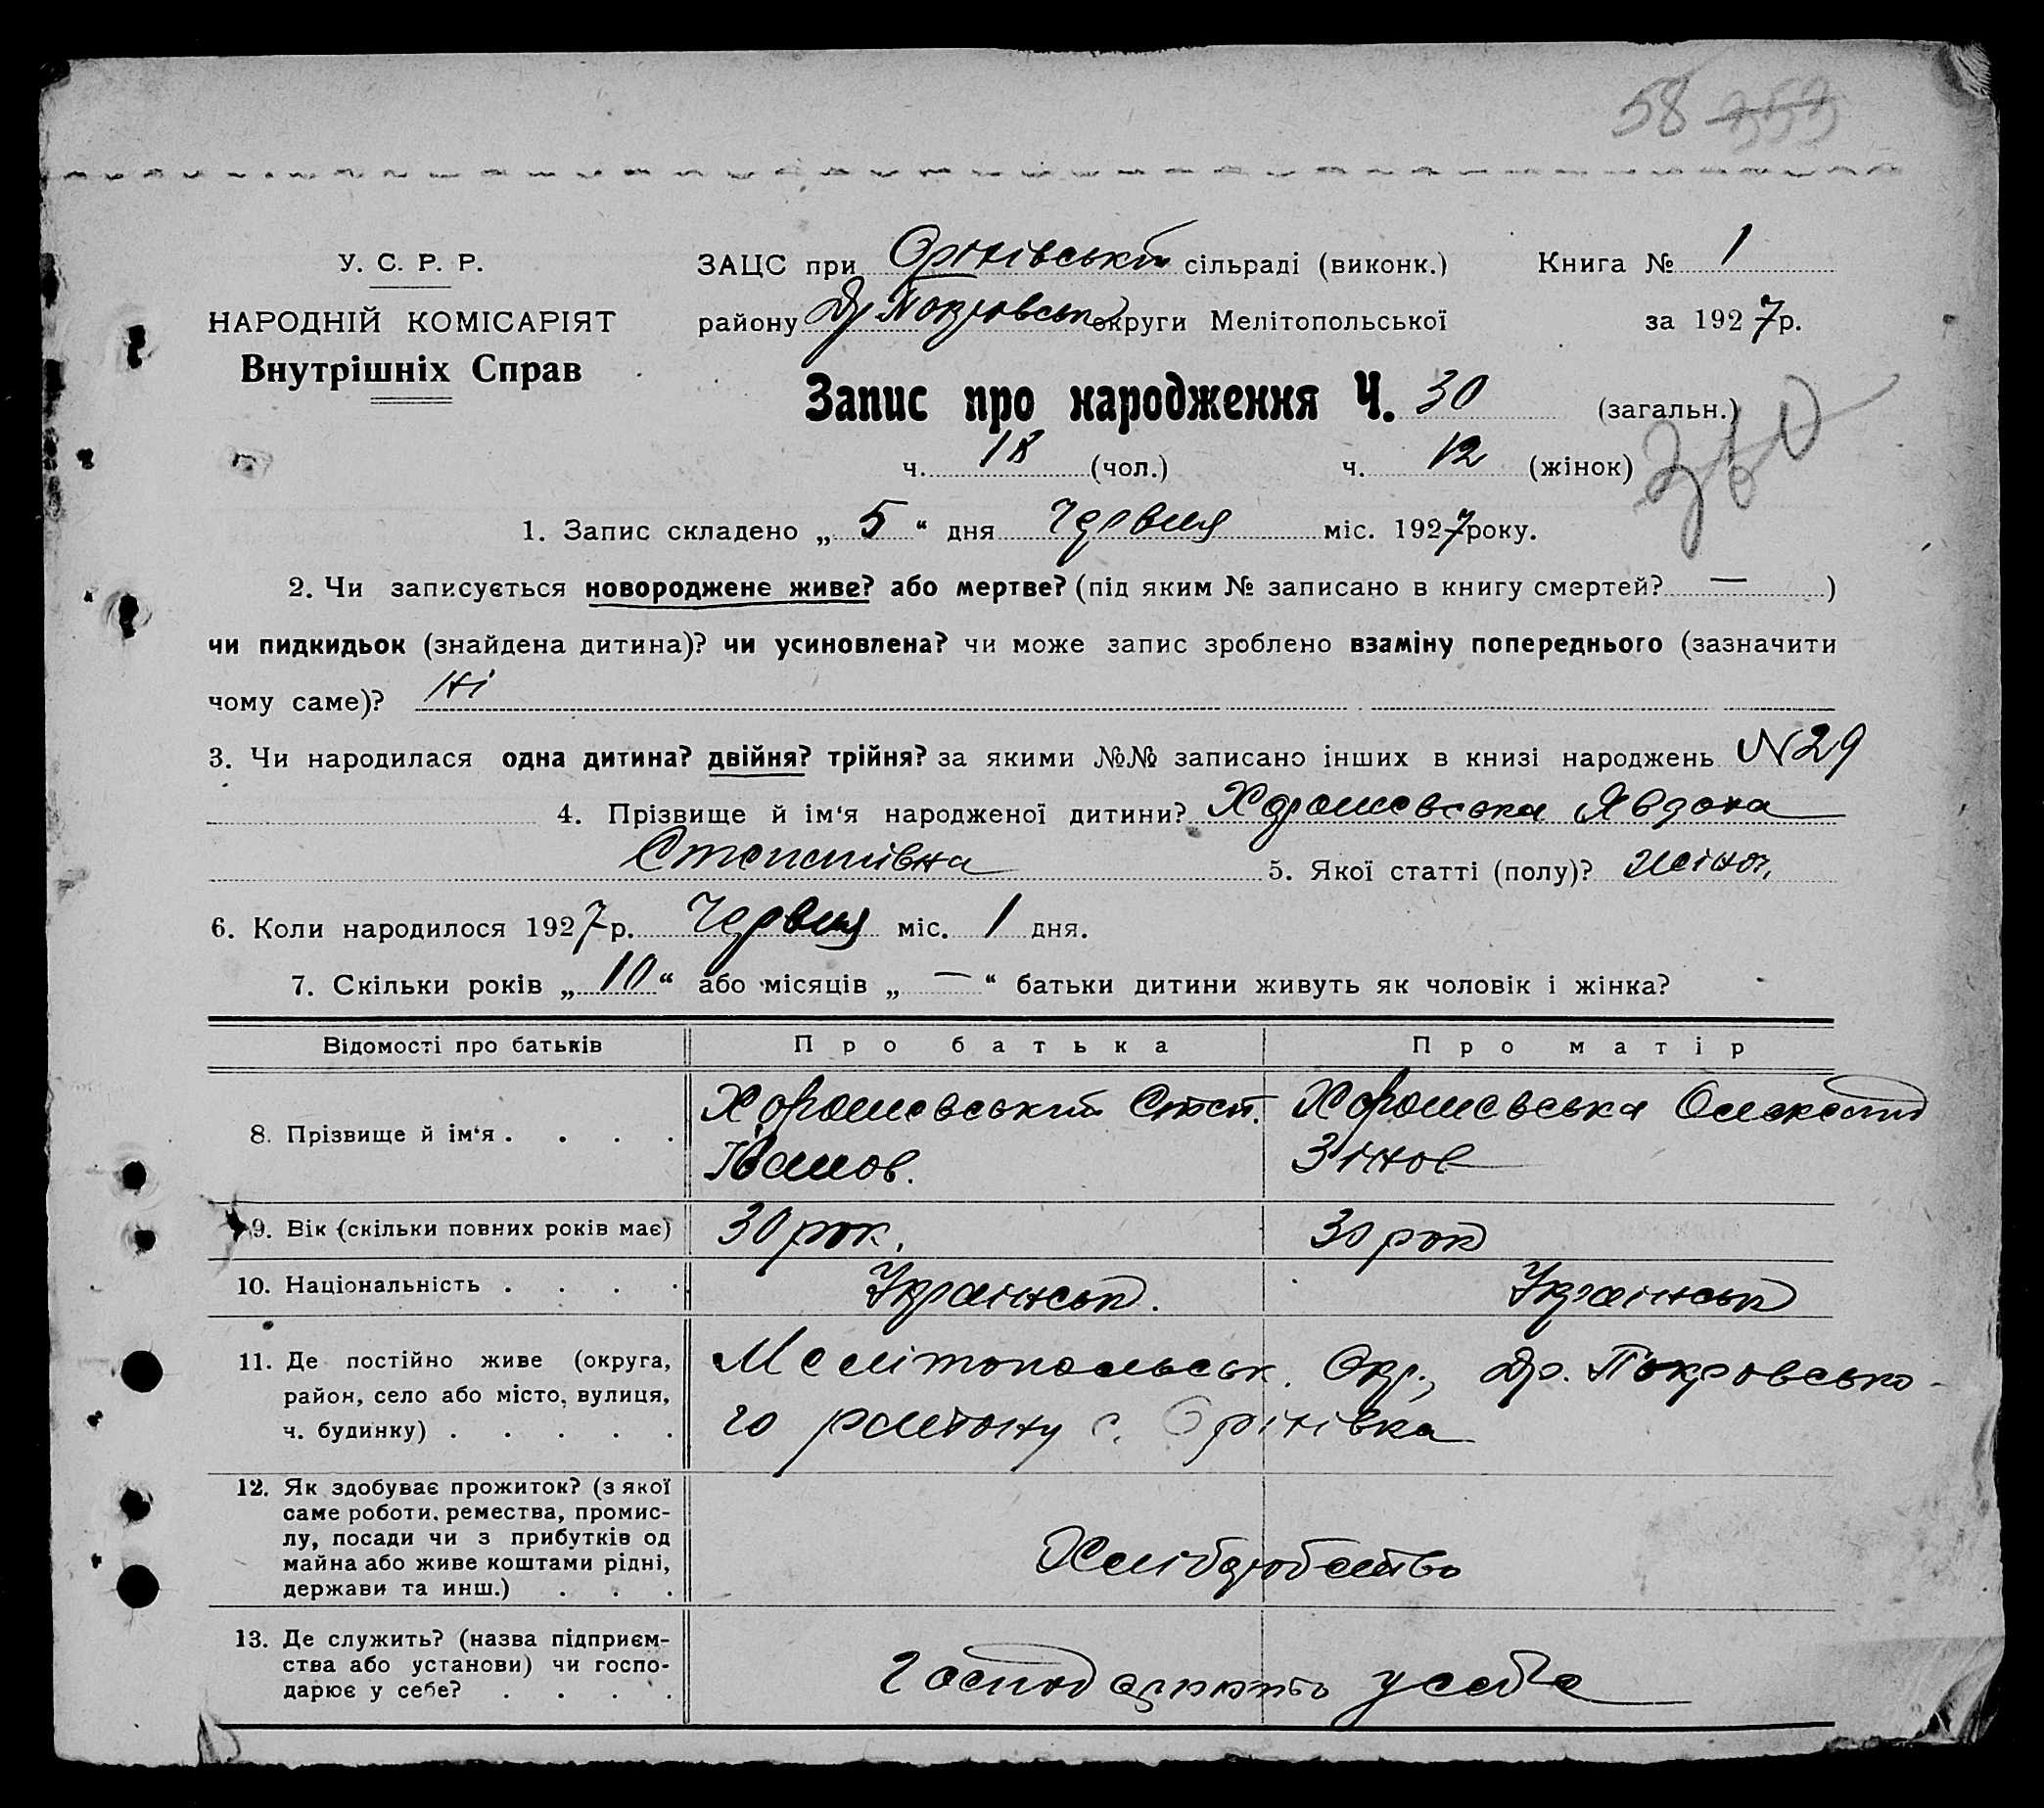 58 353
У. С. Р. Р.
НАРОДНІЙ КОМІСАРІЯТ
Внутрішніх Справ
ЗАЦС при Орінівській сільраді (виконк.) Книга № 1
району Др Покровськ округи Мелітопольської за 1927 р.
Запис про народження Ч. 30 (загальн.)
ч. 18 (чол.) ч. 12 (жінок)
1. Запис складено „ 5 “ дня Червня міс. 1927 року.
2. Чи записується новороджене живе? або мертве? (під яким № записано в книгу смертей? — )
чи пидкидьок (знайдена дитина)? чи усиновлена? чи може запис зроблено взаміну попереднього (зазначити
чому саме)? Ні
3. Чи народилася одна дитина? двійня? трійня? за якими №№ записано інших в книзі народжень N 29
4. Прізвище й ім‘я народженої дитини? Хорошевська Явдоха
Степанівна 5. Якої статті (полу)? жіноч.
6. Коли народилося 1927 р. Червня міс. 1 дня.
7. Скільки років „ 10 “ або місяців „ — “ батьки дитини живуть як чоловік і жінка?
Відомості про батьків Про батька Про матір
8. Прізвище й ім‘я . . . . Хорошевський Степ. Хорошевська Олександ
Іванов. Зінов
9. Вік (скільки повних років має) 30 рок. 30 рок
10. Національність . . . . Українськ. Українськ
11. Де постійно живе (округа, Мелітопольськ. Окр., Др. Покровсько-
район, село або місто, вулиця,
ч. будинку) . . . . . го району с. Орінівка
12. Як здобуває прожиток? (з якої
саме роботи, ремества, промис-
лу, посади чи з прибутків од
майна або живе коштами рідні,
держави та инш.) . . . Хліборобство
13. Де служить? (назва підприєм-
ства або установи) чи госпо-
дарює у себе? . . . . Господарюють у себе